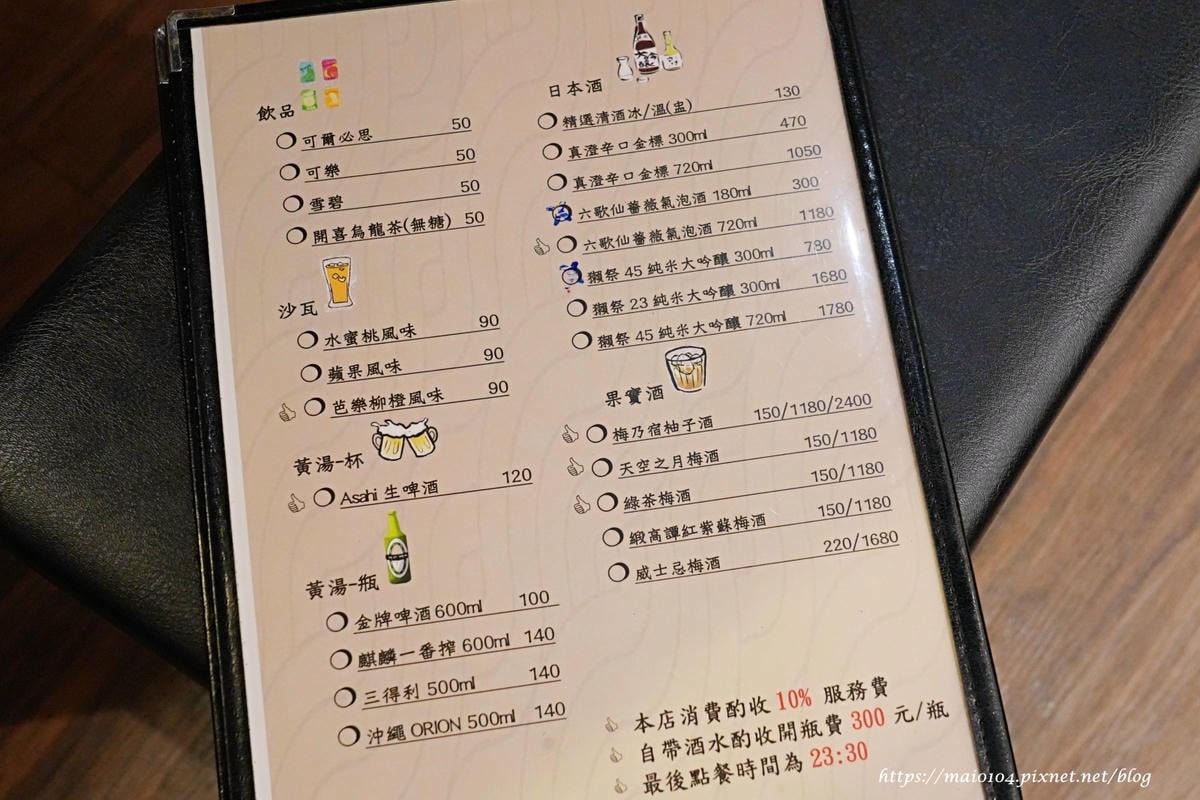 飲品
可爾必思 50
可樂 50
雪碧 50
開喜烏龍茶(無糖) 50
沙瓦
水蜜桃風味 90
蘋果風味 90
芭樂柳橙風味 90
黃湯-杯
Asahi 生啤酒 120
黃湯-瓶
金牌啤酒600ml 100
麒麟一番搾 600ml 140
三得利 500ml 140
沖繩 ORION 500ml 140
日本酒
精選清酒冰/溫(盅) 130
真澄辛口金標 300ml 470
真澄辛口金標 720ml 1050
六歌仙薔薇氣泡酒 180ml 300
六歌仙薔薇氣泡酒 720ml 1180
獺祭 45 純米大吟釀 300ml 780
獺祭 23 純米大吟釀 300ml 1680
獺祭 45 純米大吟釀 720ml 1780
果實酒
梅乃宿柚子酒 150/1180/2400
天空之月梅酒 150/1180
綠茶梅酒 150/1180
緞高譚紅紫蘇梅酒 150/1180
威士忌梅酒 220/1680
本店消費酌收 10% 服務費
自帶酒水酌收開瓶費 300 元/瓶
最後點餐時間為 23:30
https://maio104.pixnet.net/blog